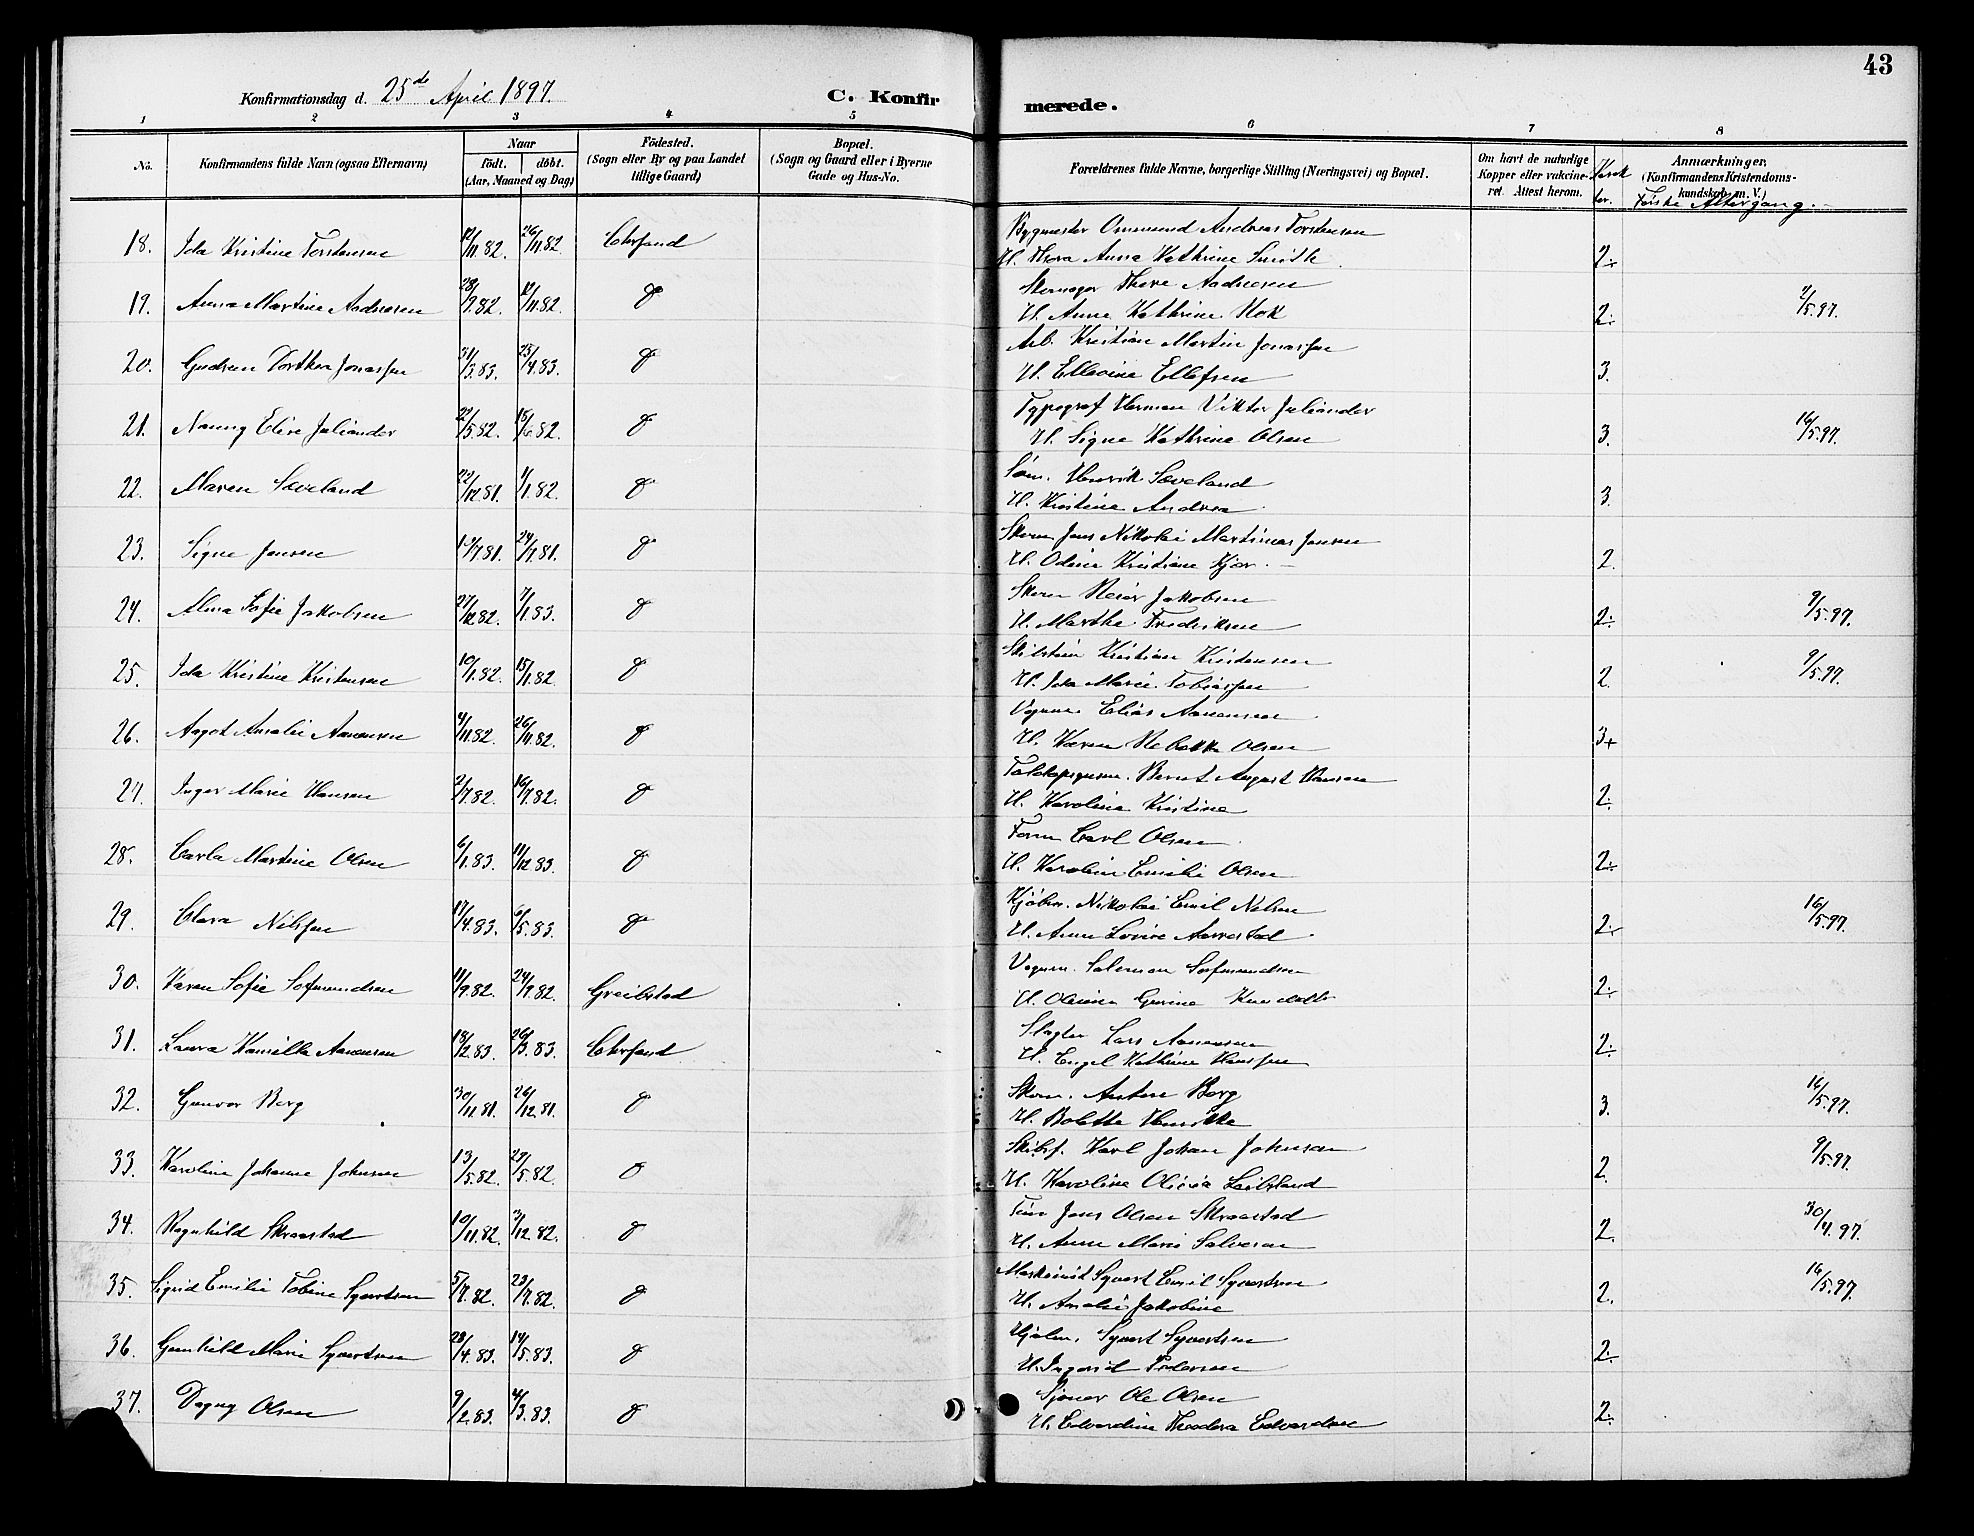 43
Konfirmationsdag d. 25de April 1897.
C. Konfirmerede.
1 2 3 4 5 6 7 8
No.
Konfirmandens fulde Navn (ogsaa Efternavn)
Naar
födt. döbt.
(Aar, Maaned og Dag)
Födested.
(Sogn eller By og paa Landet
tillige Gaard)
Bopæl.
(Sogn og Gaard eller i Byerne
Gade og Hus-No.
Forældrenes fulde Navne, borgerlige Stilling (Næringsvei) og Bopæl.
Om havt de naturlige
Kopper eller vakcine-
ret. Attest herom.
Anmærkninger.
(Konfirmandens Kristendoms-
kundskab m. V.)
Første Altergang.
18. Ida Kristine Torstensen 12/11.82. 26/11.82 Chrsand Bygmester Ommund Andreas Torstensen
H. Thora Anna Kathrine Smith 2÷
19. Anna Martine Andresen 28/9.82. 12/11.82. Skomager Andresen
H. Anne Kathrine Hok 2÷ 2/5.97.
20. Gudrun Dorthea Jonassen 31/3.83. 25/4.83. Arb. Kristian Martin Jonassen
H. Ellevine Ellefsen 3.
21. Nanny Elise Juliander 22/5.82. 15/6.82. Typograf Herman Viktor Juliander
H. Signe Kathrine Olsen 3. 16/5.97.
22. Maren Sæveland 22/12.81. 1/1.82. Söm. Henrik Sæveland
H. Kristine Andrea 3.
23. Signe Jensen 24/7.81. Skom Jens Nikolai Martinus Jensen
H. Odine Kristiane Kjær 2.
24. Alma Sofie Jakobsen 27/12.82. 7/1.83. Skom Reier Jakobsen
H. Marthe Fredriksen 2÷ 9/5.97.
25. Ida Kristine Kristensen 10/1.82. 15/1.82. Kristian Kristensen
H. Ida Marie Tobiassen 2. 9/5.97.
26. Aagot Amalie Aanensen 4/11.82. 26/11.82. Vognm. Elias Aanensen
H. Karen Rebekke Olsen 3+
27. Inger Marie Hansen 2/7.82. 16/7.82. Bernt August Hansen
H. Karoline Kristine 2.
28. Carla Martine Olsen 6/1.83. 11/12.83. Form Carl Olsen
H. Karoline Emilie Olsen 2÷
29. Clara Nilssen 17/4.83. 6/5.83. Kjöbm. Nikolai Emil Nilsen
H. Anne Lovise Aarrestad 2÷ 16/5.97.
30. Karen Sofie Sofmundsen 11/9.82. 24/9.82. Greibstad Vognm. Salemon Sofmundsen
H. Olevine Gurine 2÷
31. Laura Kamilla Aanensen 18/2.83. 26/3.83. Chrsand Slagter Lars Aanensen
H. Engel Kathrine Hanssen 2÷
32. Gunvor Berg 30/11.81. 26/12.81. Skom. Anders Berg
H. Bolette Henrikke 3. 16/5.97.
33. Karoline Johanne Johnsen 13/5.82. 29/5.82. Skibsf. Karl Johan Johnsen
H. Karoline Olivia Leibsland 2. 9/5.97.
34. Ragnhild Skraastad 10/11.82. 3/12.82. Töm Jens Olsen Skraastad
H. Anne Marie Salvesen 2. 30/4.97.
35. Sigrid Emilie Tobine Syvertsen 5/7.82. 23/7.82. Maskinist Syvert Emil Syvertsen
H. Amalie Jakobine 2. 16/5.97.
36. Gunhild Marie Syvertsen 28/4.83. 14/5.83. Syvert Syvertsen
H. Ingerid Pedersen 2÷
37. Dagny Olsen 9/2.83. 4/3.83. Ole Olsen
H. Edvardine Theodora Edvardsen 2÷